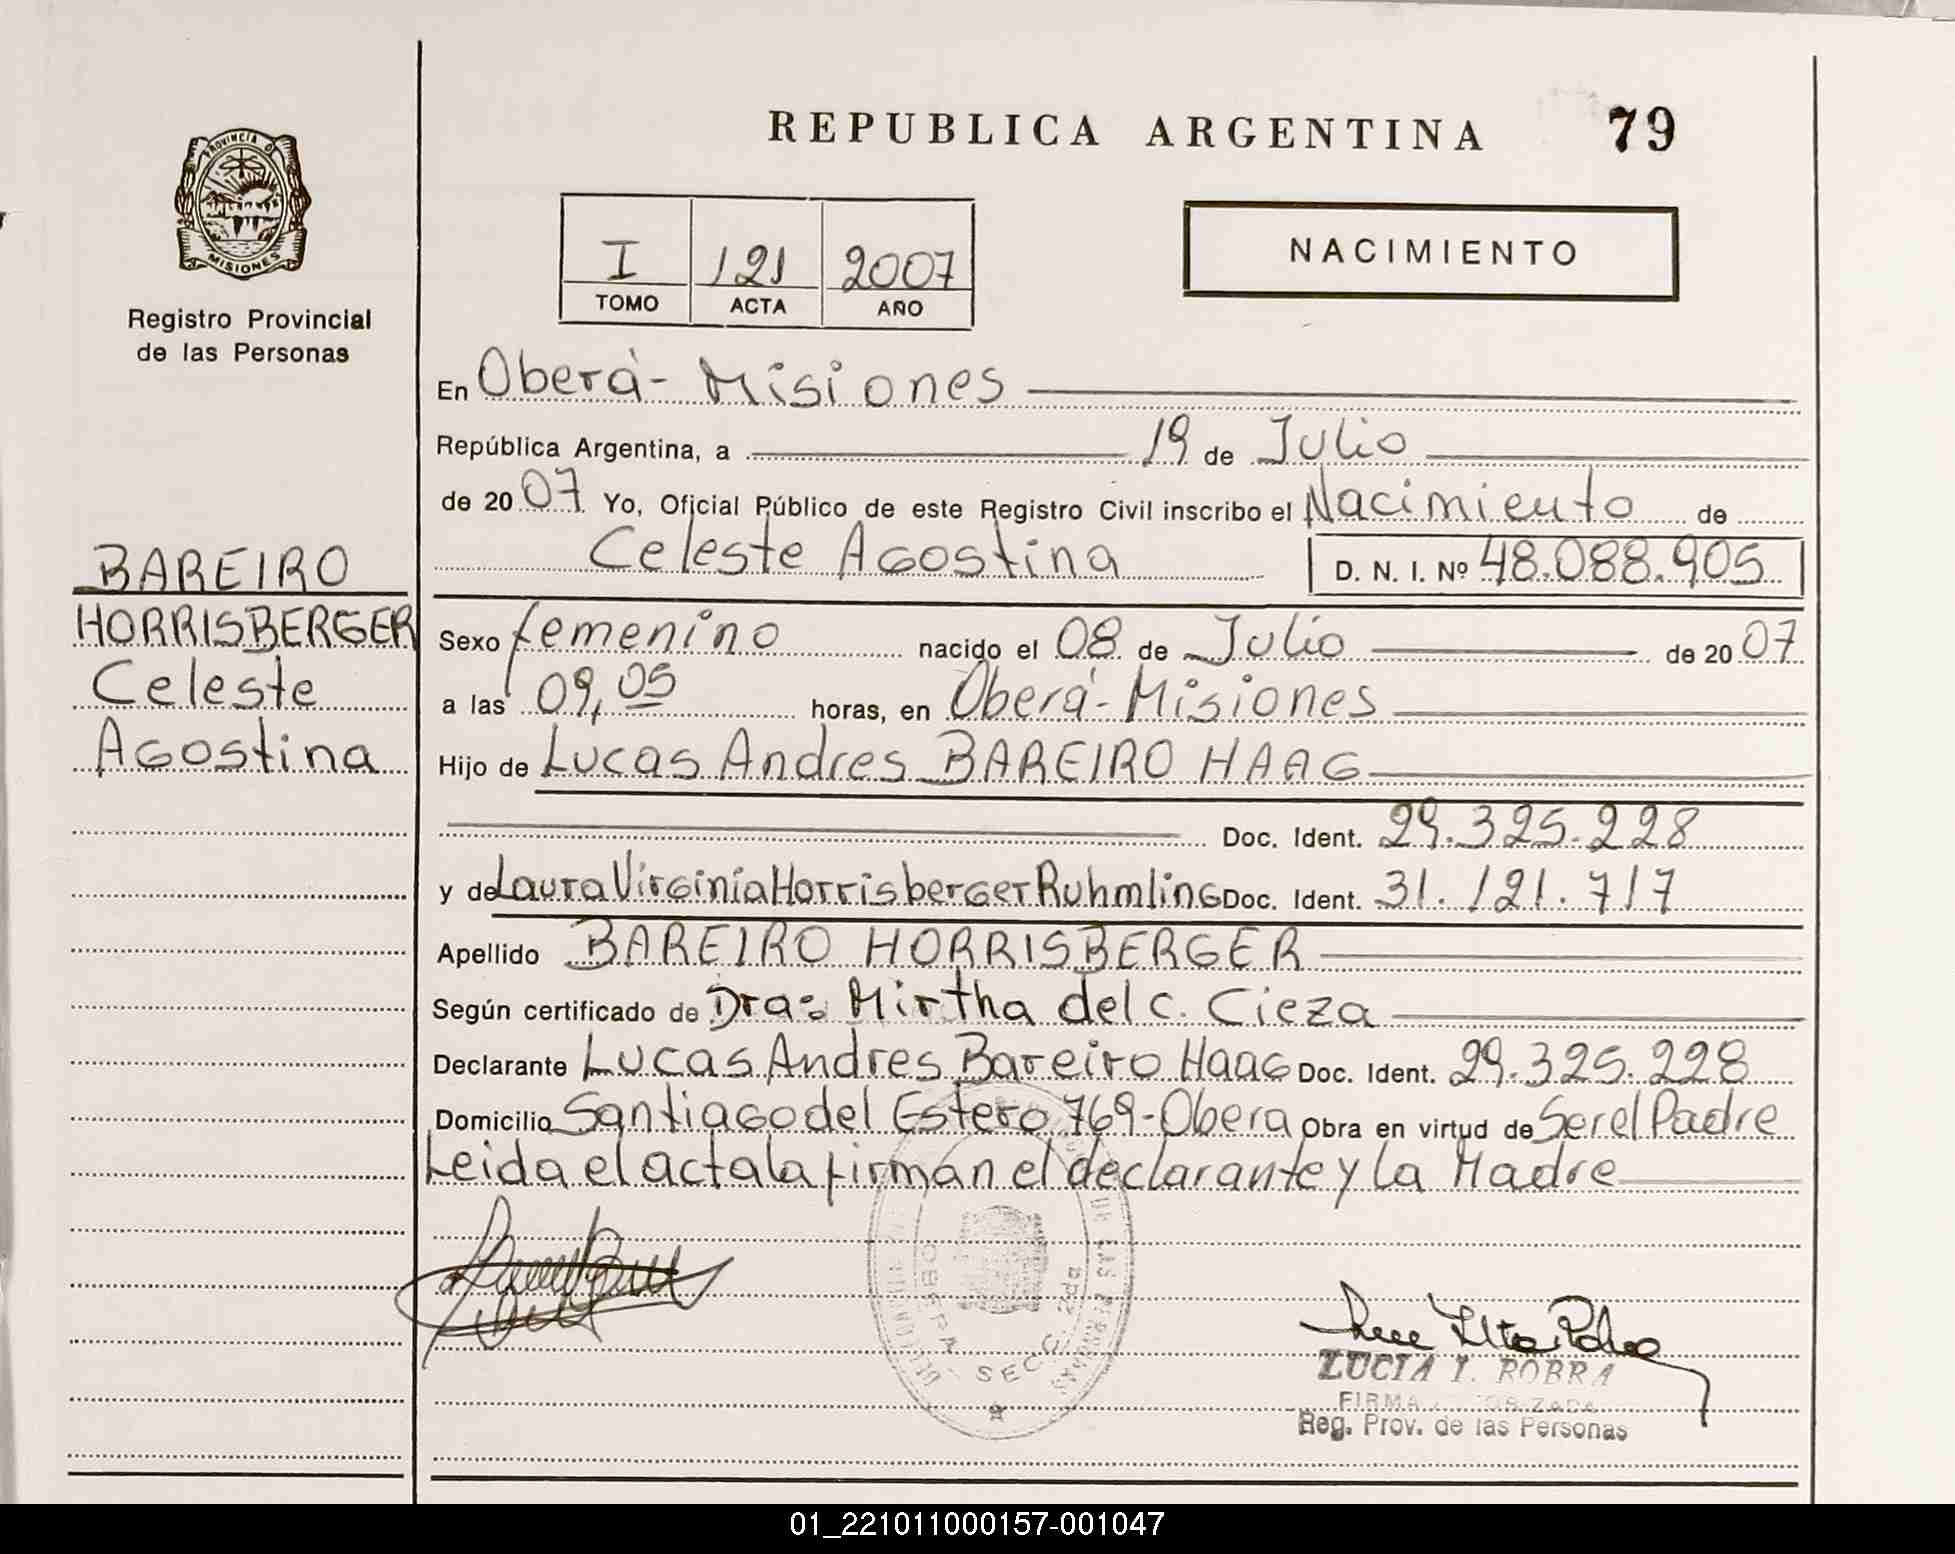 REPUBLICA ARGENTINA 79
PROVINCIA D
MISIONES
Registro Provincial
de las Personas
I 121 2007
TOMO ACTA AÑO
NACIMIENTO
En Oberá - Misiones
República Argentina, a 19 de Julio
de 2007 Yo, Oficial Público de este Registro Civil inscribo el Nacimiento de
Celeste Agostina D. N. I. Nº 48.088.905
BAREIRO
HORRISBERGER
Celeste
Agostina
Sexo femenino nacido el 08 de Julio de 2007
a las 09,05 horas, en Oberá - Misiones
Hijo de Lucas Andres BAREIRO HAAG
Doc. Ident. 29.325.228
y de Laura Virginia Horrisberger Ruhmling Doc. Ident. 31.121.717
Apellido BAREIRO HORRISBERGER
Según certificado de Dra: Mirtha del C. Cieza
Declarante Lucas Andres Bareiro Haag Doc. Ident. 29.325.228
Domicilio Santiago del Estero 769 - Obera Obra en virtud de Ser el Padre
Leida el acta la firman el declarante y la Madre
DE LAS PERSONAS
OBERA SECC. 2da
LUCIA I. ROBRA
FIRMA
Reg. Prov. de las Personas
01_221011000157-001047